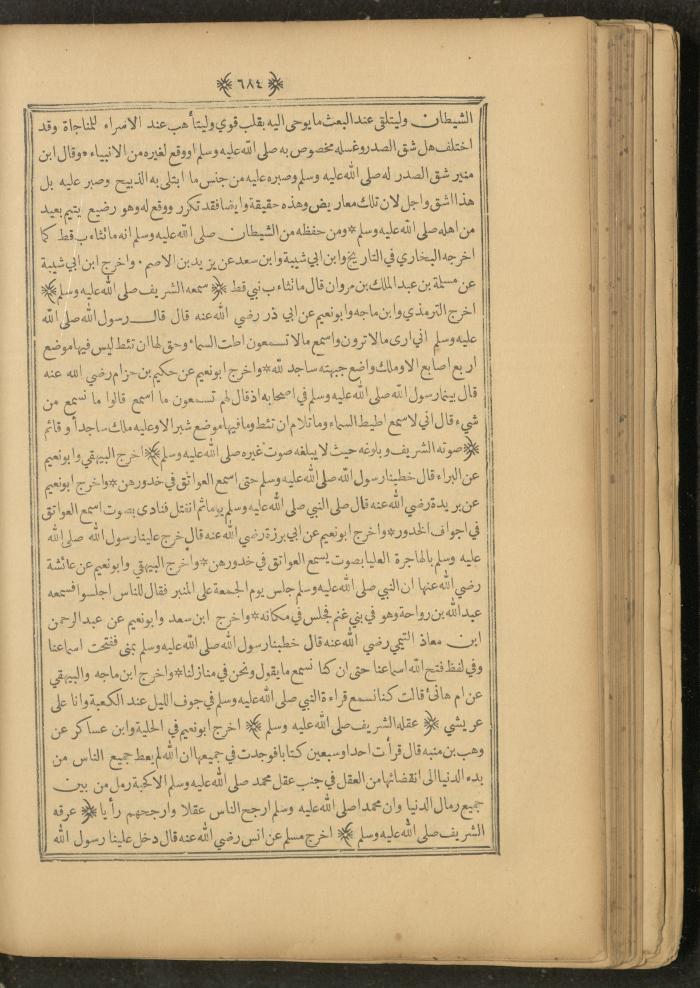 ﴿ ٦٨٤ ﴾
الشيطان وليتلقى عند البعث ما يوحى اليه بقلب قوي وليتأهب عند الاسراء للمناجاة وقد
اختلف هل شق الصدر وغسله مخصوص به صلى الله عليه وسلم او وقع لغيره من الانبياء ٠ وقال ابن
منير شق الصدر له صلى الله عليه وسلم وصبره عليه من جنس ما ابتلى به الذبيح وصبر عليه بل
هذا اشق واجل لان تلك معاريض وهذه حقيقة وايضا فقد تكرر ووقع له وهو رضيع يتيم بعيد
من اهله صلى الله عليه وسلم * ومن حفظه من الشيطان صلى الله عليه وسلم انه ما تثاءب قط كما
اخرجه البخاري في التاريخ وابن ابي شيبة وابن سعد عن يزيد بن الاصم ٠ واخرج ابن ابي شيبة
عن مسلمة بن عبد الملك بن مروان قال ما تثاءب نبي قط ﴿ سمعه الشريف صلى الله عليه وسلم ﴾
اخرج الترمذي وابن ماجه وابو نعيم عن ابي ذر رضي الله عنه قال قال رسول الله صلى الله
عليه وسلم اني ارى ما لا ترون واسمع ما لا تسمعون اطت السماء وحق لها ان تئط ليس فيها موضع
اربع اصابع الا وملك واضع جبهته ساجد لله * واخرج ابو نعيم عن حكيم بن حزام رضي الله عنه
قال بينما رسول الله صلى الله عليه وسلم في اصحابه اذ قال لهم تسمعون ما اسمع قالوا ما نسمع من
شيء قال اني لاسمع اطيط السماء وما تلام ان تئط وما فيها موضع شبر الا وعليه ملك ساجد أو قائم
﴿ صوته الشريف وبلوغه حيث لا يبلغه صوت غيره صلى الله عليه وسلم ﴾ اخرج البيهقي وابو نعيم
عن البراء قال خطبنا رسول الله صلى الله عليه وسلم حتى اسمع العواتق في خدورهن * واخرج ابو نعيم
عن بريدة رضي الله عنه قال صلى النبي صلى الله عليه وسلم يوما ثم انفتل فنادى بصوت اسمع العواتق
في اجواف الخدور * واخرج ابو نعيم عن ابي برزة رضي الله عنه قال خرج علينا رسول الله صلى الله
عليه وسلم بالهاجرة العليا بصوت يسمع العواتق في خدورهن * واخرج البيهقي وابو نعيم عن عائشة
رضي الله عنها ان النبي صلى الله عليه وسلم جلس يوم الجمعة على المنبر فقال للناس اجلسوا فسمعه
عبد الله بن رواحة وهو في بني غنم فجلس في مكانه * واخرج ابن سعد وابو نعيم عن عبد الرحمن
ابن معاذ التيمي رضي الله عنه قال خطبنا رسول الله صلى الله عليه وسلم بمنى ففتحت اسماعنا
وفي لفظ ففتح الله اسماعنا حتى ان كنا نسمع ما يقول ونحن في منازلنا * واخرج ابن ماجه والبيهقي
عن ام هانئ قالت كنا نسمع قراءة النبي صلى الله عليه وسلم في جوف الليل عند الكعبة وانا على
عريشي ﴿ عقله الشريف صلى الله عليه وسلم ﴾ اخرج ابو نعيم في الحلية وابن عساكر عن
وهب بن منبه قال قرأت احدا وسبعين كتابا فوجدت في جميعها ان الله لم يعط جميع الناس من
بدء الدنيا الى انقضائها من العقل في جنب عقل محمد صلى الله عليه وسلم الا كحبة رمل من بين
جميع رمال الدنيا وان محمدا صلى الله عليه وسلم ارجح الناس عقلا وارجحهم رأيا ﴿ عرقه
الشريف صلى الله عليه وسلم ﴾ اخرج مسلم عن انس رضي الله عنه قال دخل علينا رسول الله